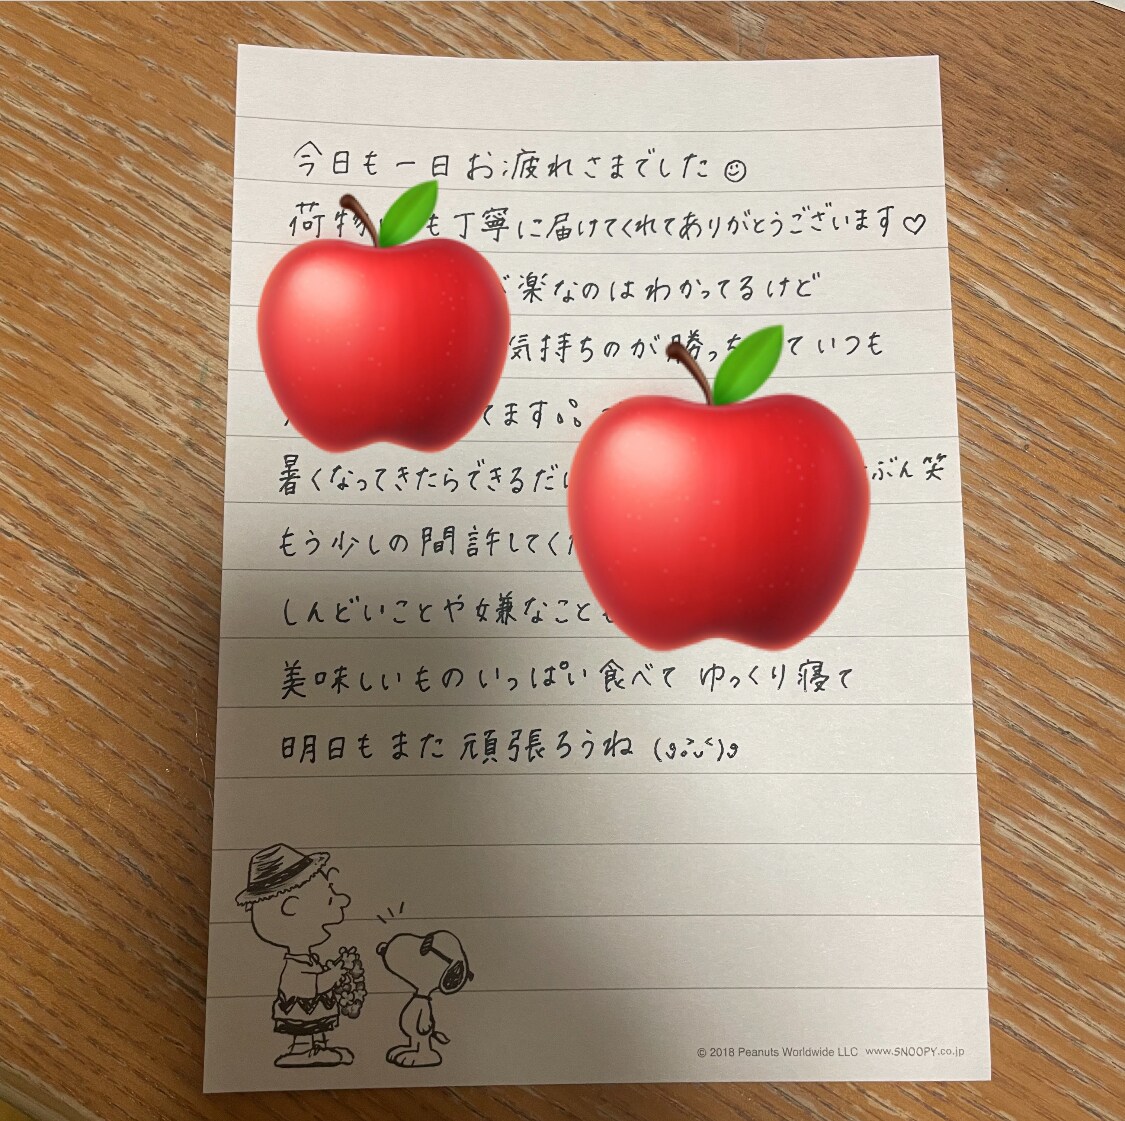 今日も一日お疲れさまでした☺
荷物 も丁寧に届けてくれてありがとうございます♡
楽なのはわかってるけど
気持ちのが勝っ ていつも
てます
暑くなってきたらできるだ ぶん笑
もう少しの間許してく
しんどいことや嫌なこと
美味しいものいっぱい食べて ゆっくり寝て
明日もまた頑張ろうね
© 2018 Peanuts Worldwide LLC www.SNOOPY.co.jp